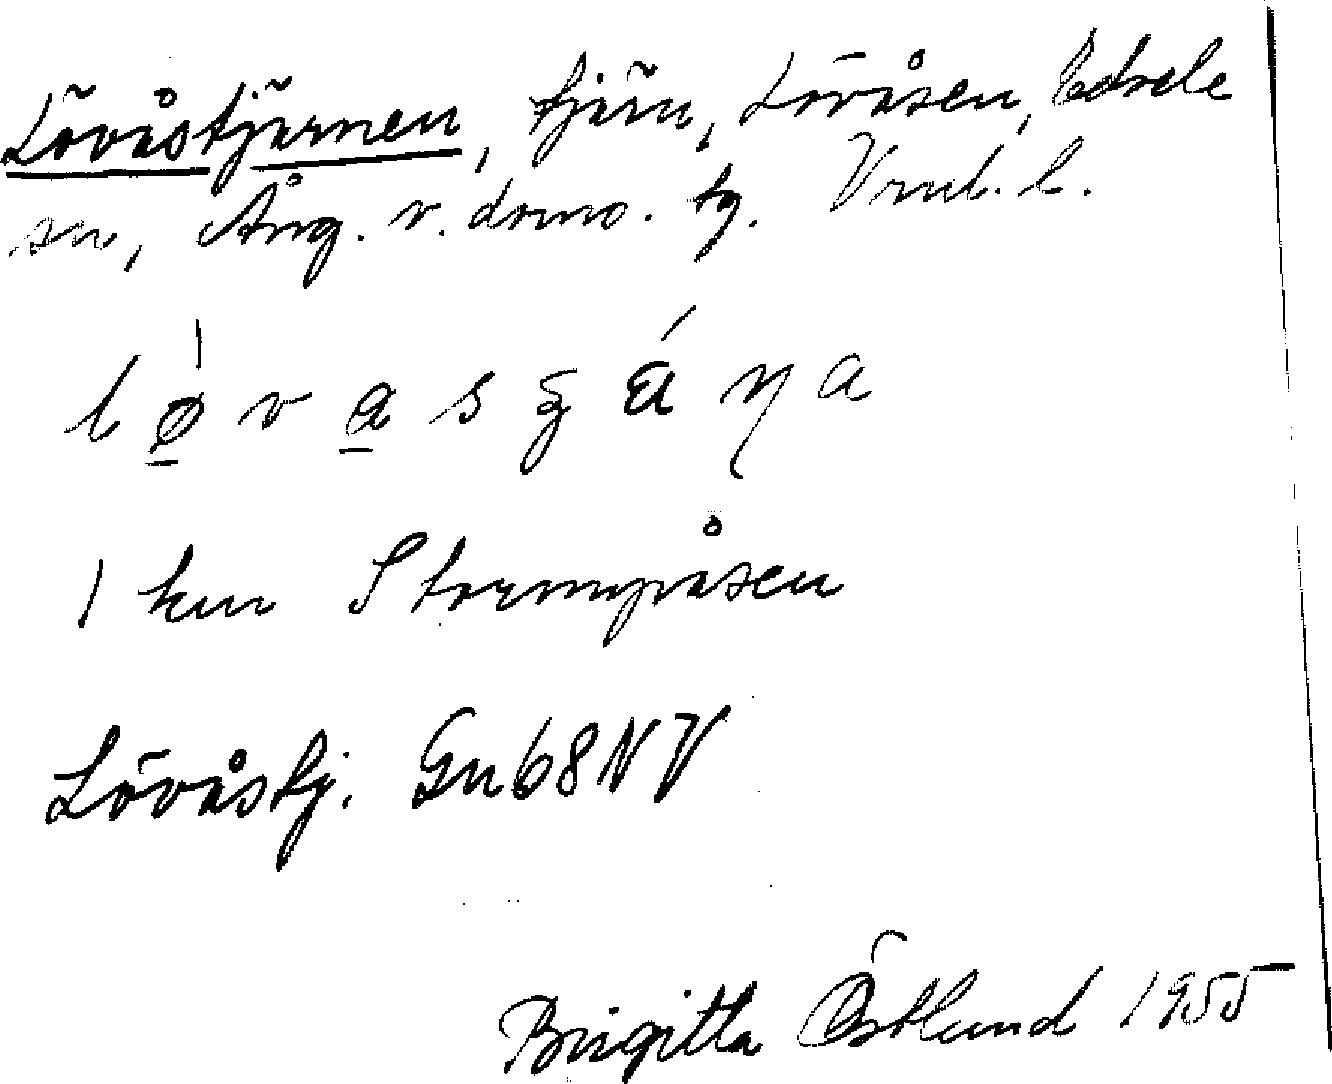 Lövåstjärnen, tjärn, Lövåsen, Edsele
sn, Ång. v. doms. tg. Vrml. l.
1 km Stormyråsen
Lövåstj. Gn68NV
Birgitta Östlund 1955